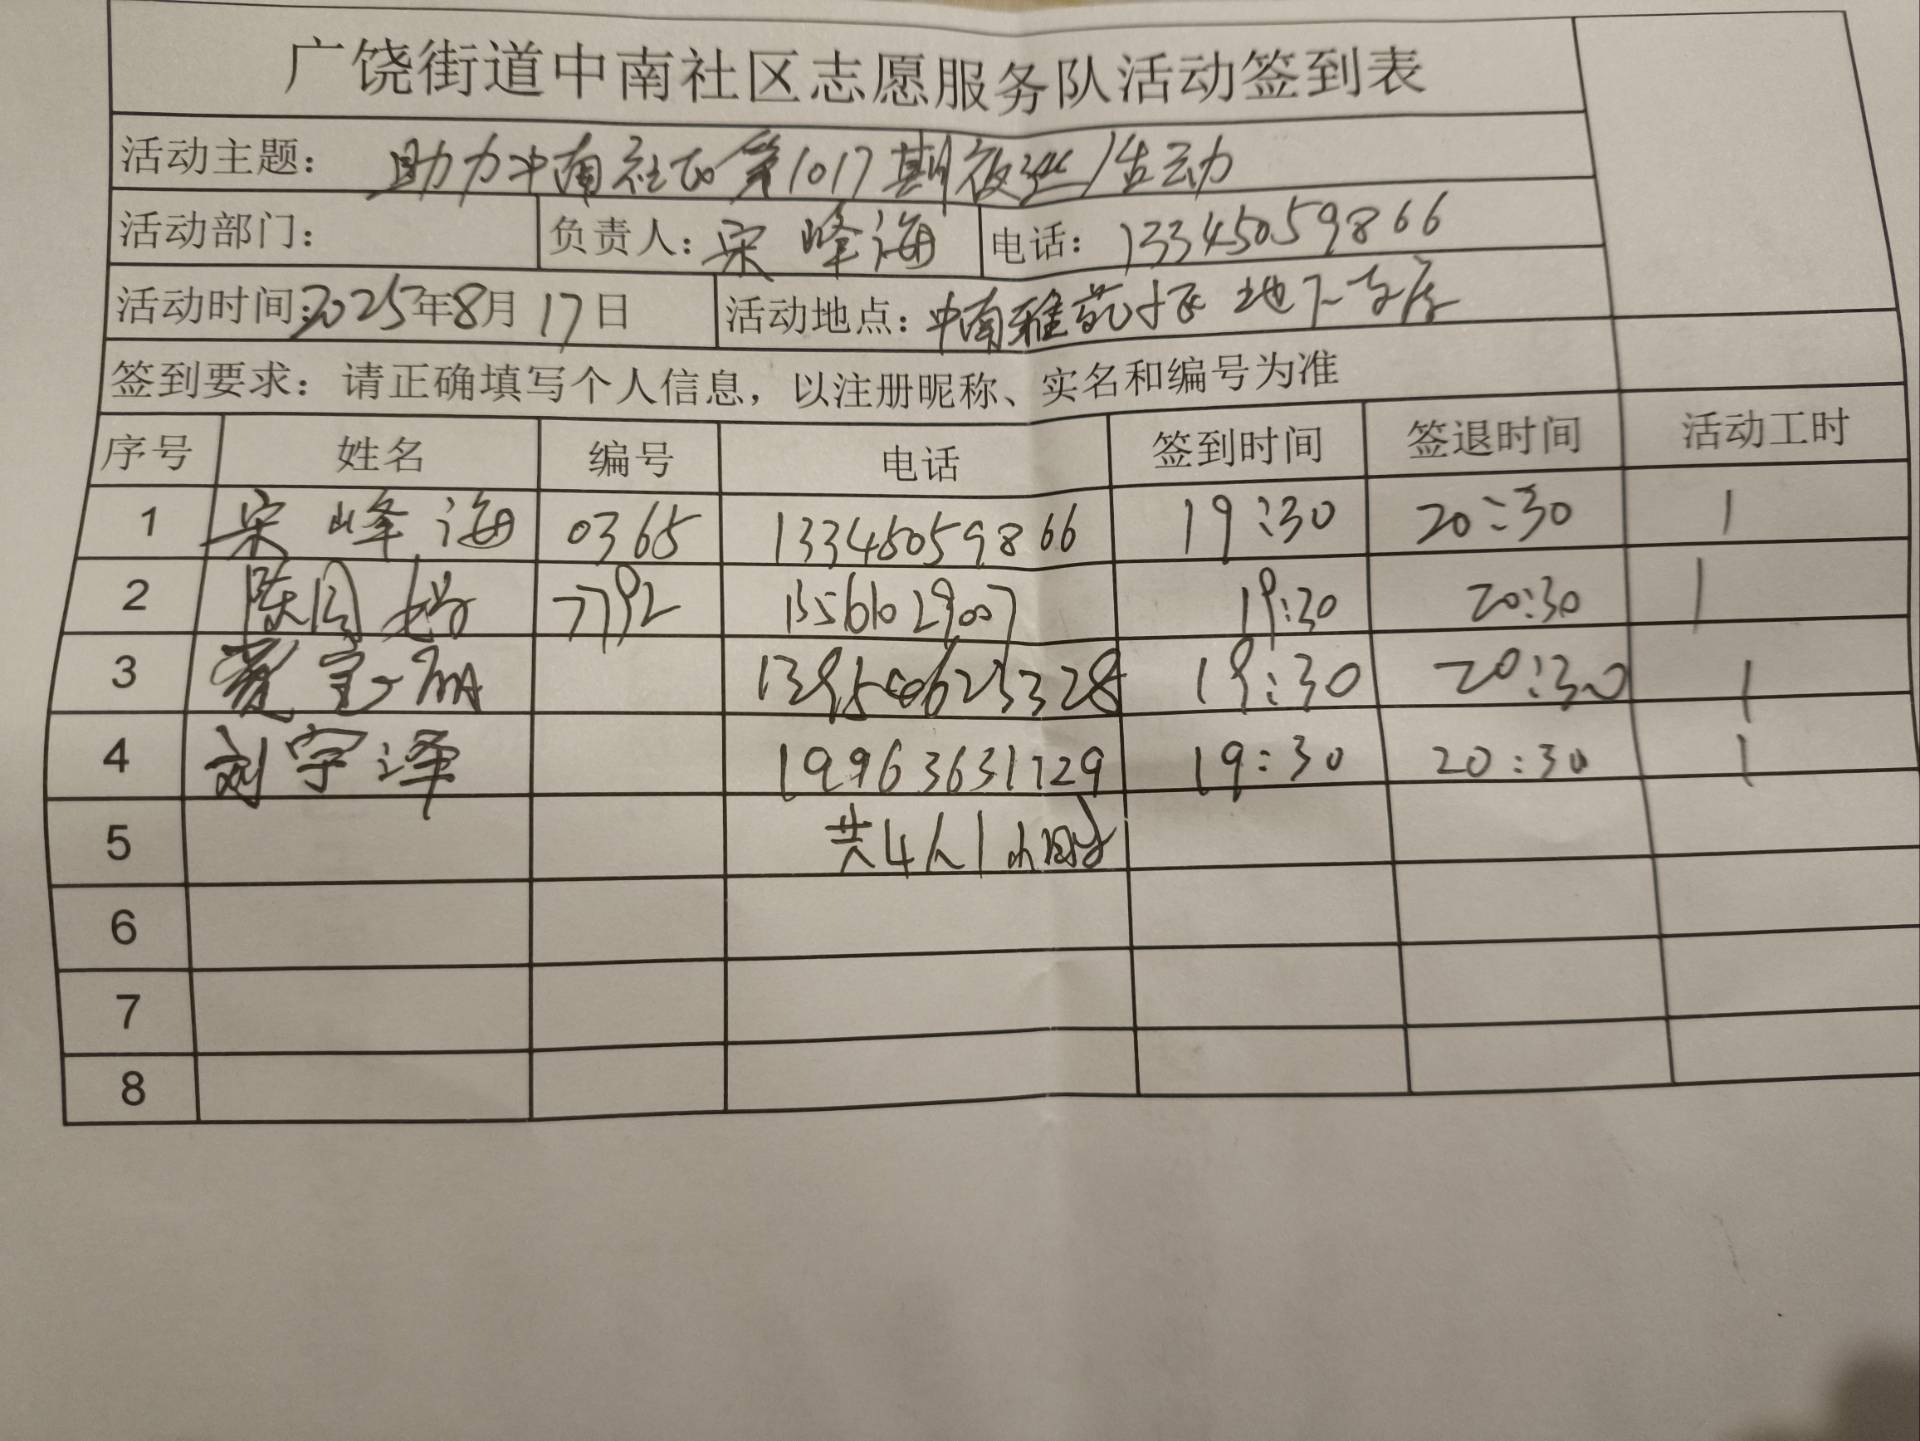 广饶街道中南社区志愿服务队活动签到表
活动主题: 助力中南社区第1017期夜巡活动
活动部门: 负责人: 宋峰海 电话: 13345059866
活动时间: 2025年8月17日 活动地点: 中南雅苑小区地下车库
签到要求: 请正确填写个人信息，以注册昵称、实名和编号为准
序号 姓名 编号 电话 签到时间 签退时间 活动工时
1 宋峰海 0365 13345059866 19:30 20:30 1
2 陈 7792 13561029007 19:30 20:30 1
3 19:30 20:30 1
4 刘宇泽 19963631729 19:30 20:30 1
5 共4人1小时
6
7
8